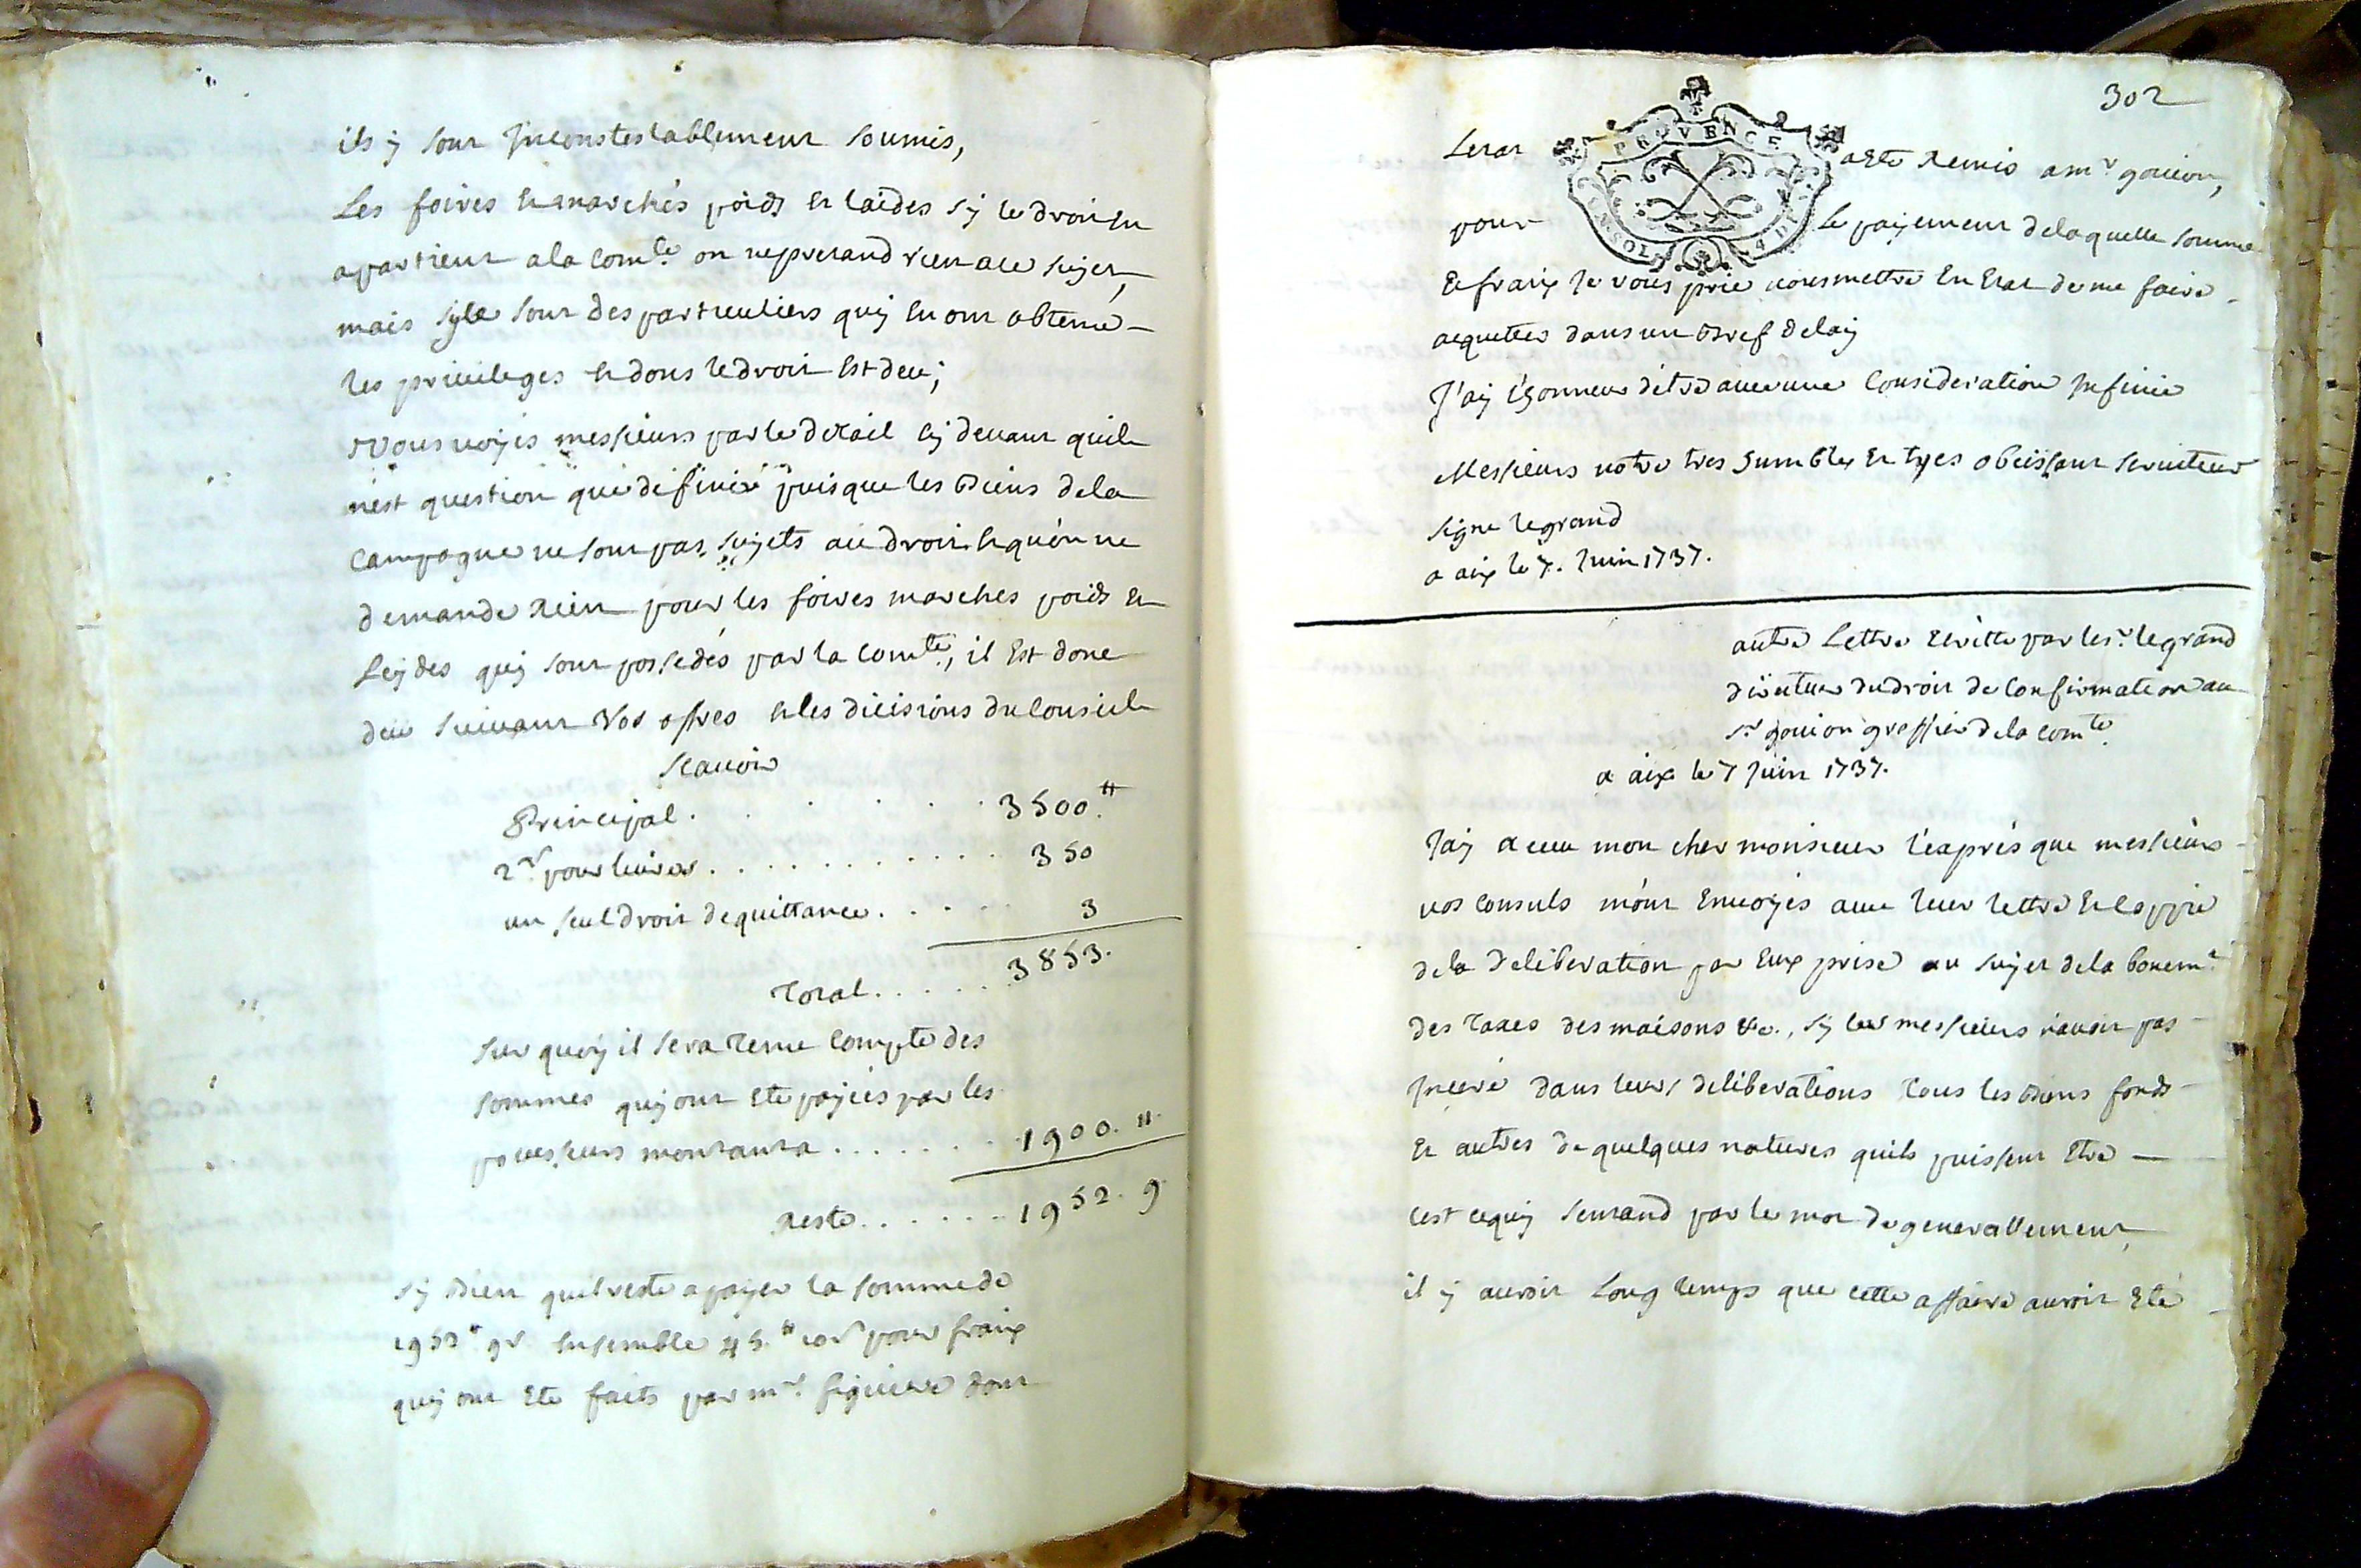 ils y sont Inconstestablement soumis,
Les foires et marchés poids et laides sy le droit en
apartient a la com.té on ne prerand rien a ce sujet,
mais syle sont des particuliers quy en ont obtenu
les privileges et dons le droit est deu;
Vous voyés messieurs par le detail cy devant quil
nest question que de finir puisque les Biens de la
campagne ne sont pas sujets au droit et qu'on ne
demande Rien pour les foires marches poids et
Leydes quy sont possedés par la com.té, il Est donc
deu suivant vos offres et les dicisions du Conseil
scavoir
Principal . . . . . 3500.ʰ
2.s pour livres . . . . . . . . . . 350
un seul droit de quittance . . . . . 3
Total . . . . . 3853.
sur quoy il sera tenu compte des
sommes quy ont Eté payées par les
possesseurs montants . . . . . . . 1900. ʰ
Reste . . . . . . 1952. 9
sy Bien quil reste a payer la somme de
1952ʰ 9s Ensemble 45.ʰ 10s pour fraix
quy ont Eté faits par m.r figuiere dont
302
PROVENCE
UN SOL 4 D
Letat a Eté Remis a m.r gouion,
pour Le payement de laquelle somme
Et fraix Je vous prie vous mettre En Etat de me faire
acquitter dans un Bref delay
J'ay l'honneur d'etre avec une Consideration Infinie
Messieurs votre tres humble et tres obeissant serviteur
signe legrand
a aix le 7. Juin 1737.
autre Lettre Ecritte par le s.r legrand
directeur du droit de Confirmation au
s.r gouion greffier de la com.té
a aix le 7 Juin 1737.
J'ay Receu mon cher monsieur l'exprés que messieurs
vos consuls m'ont Envoyés avec leur lettre Et coppie
de la Deliberation par Eux prise au sujet de la bonem.t
des Taxes des maisons &c., sy ces messieurs n'avoit pas
Inceré dans leurs deliberations tous les Biens fonds
Et autres de quelques natures quils puissent Etre
cest cequy sentand par le mot de generallement,
il y auroit Long temps que cette affaire auroit Eté